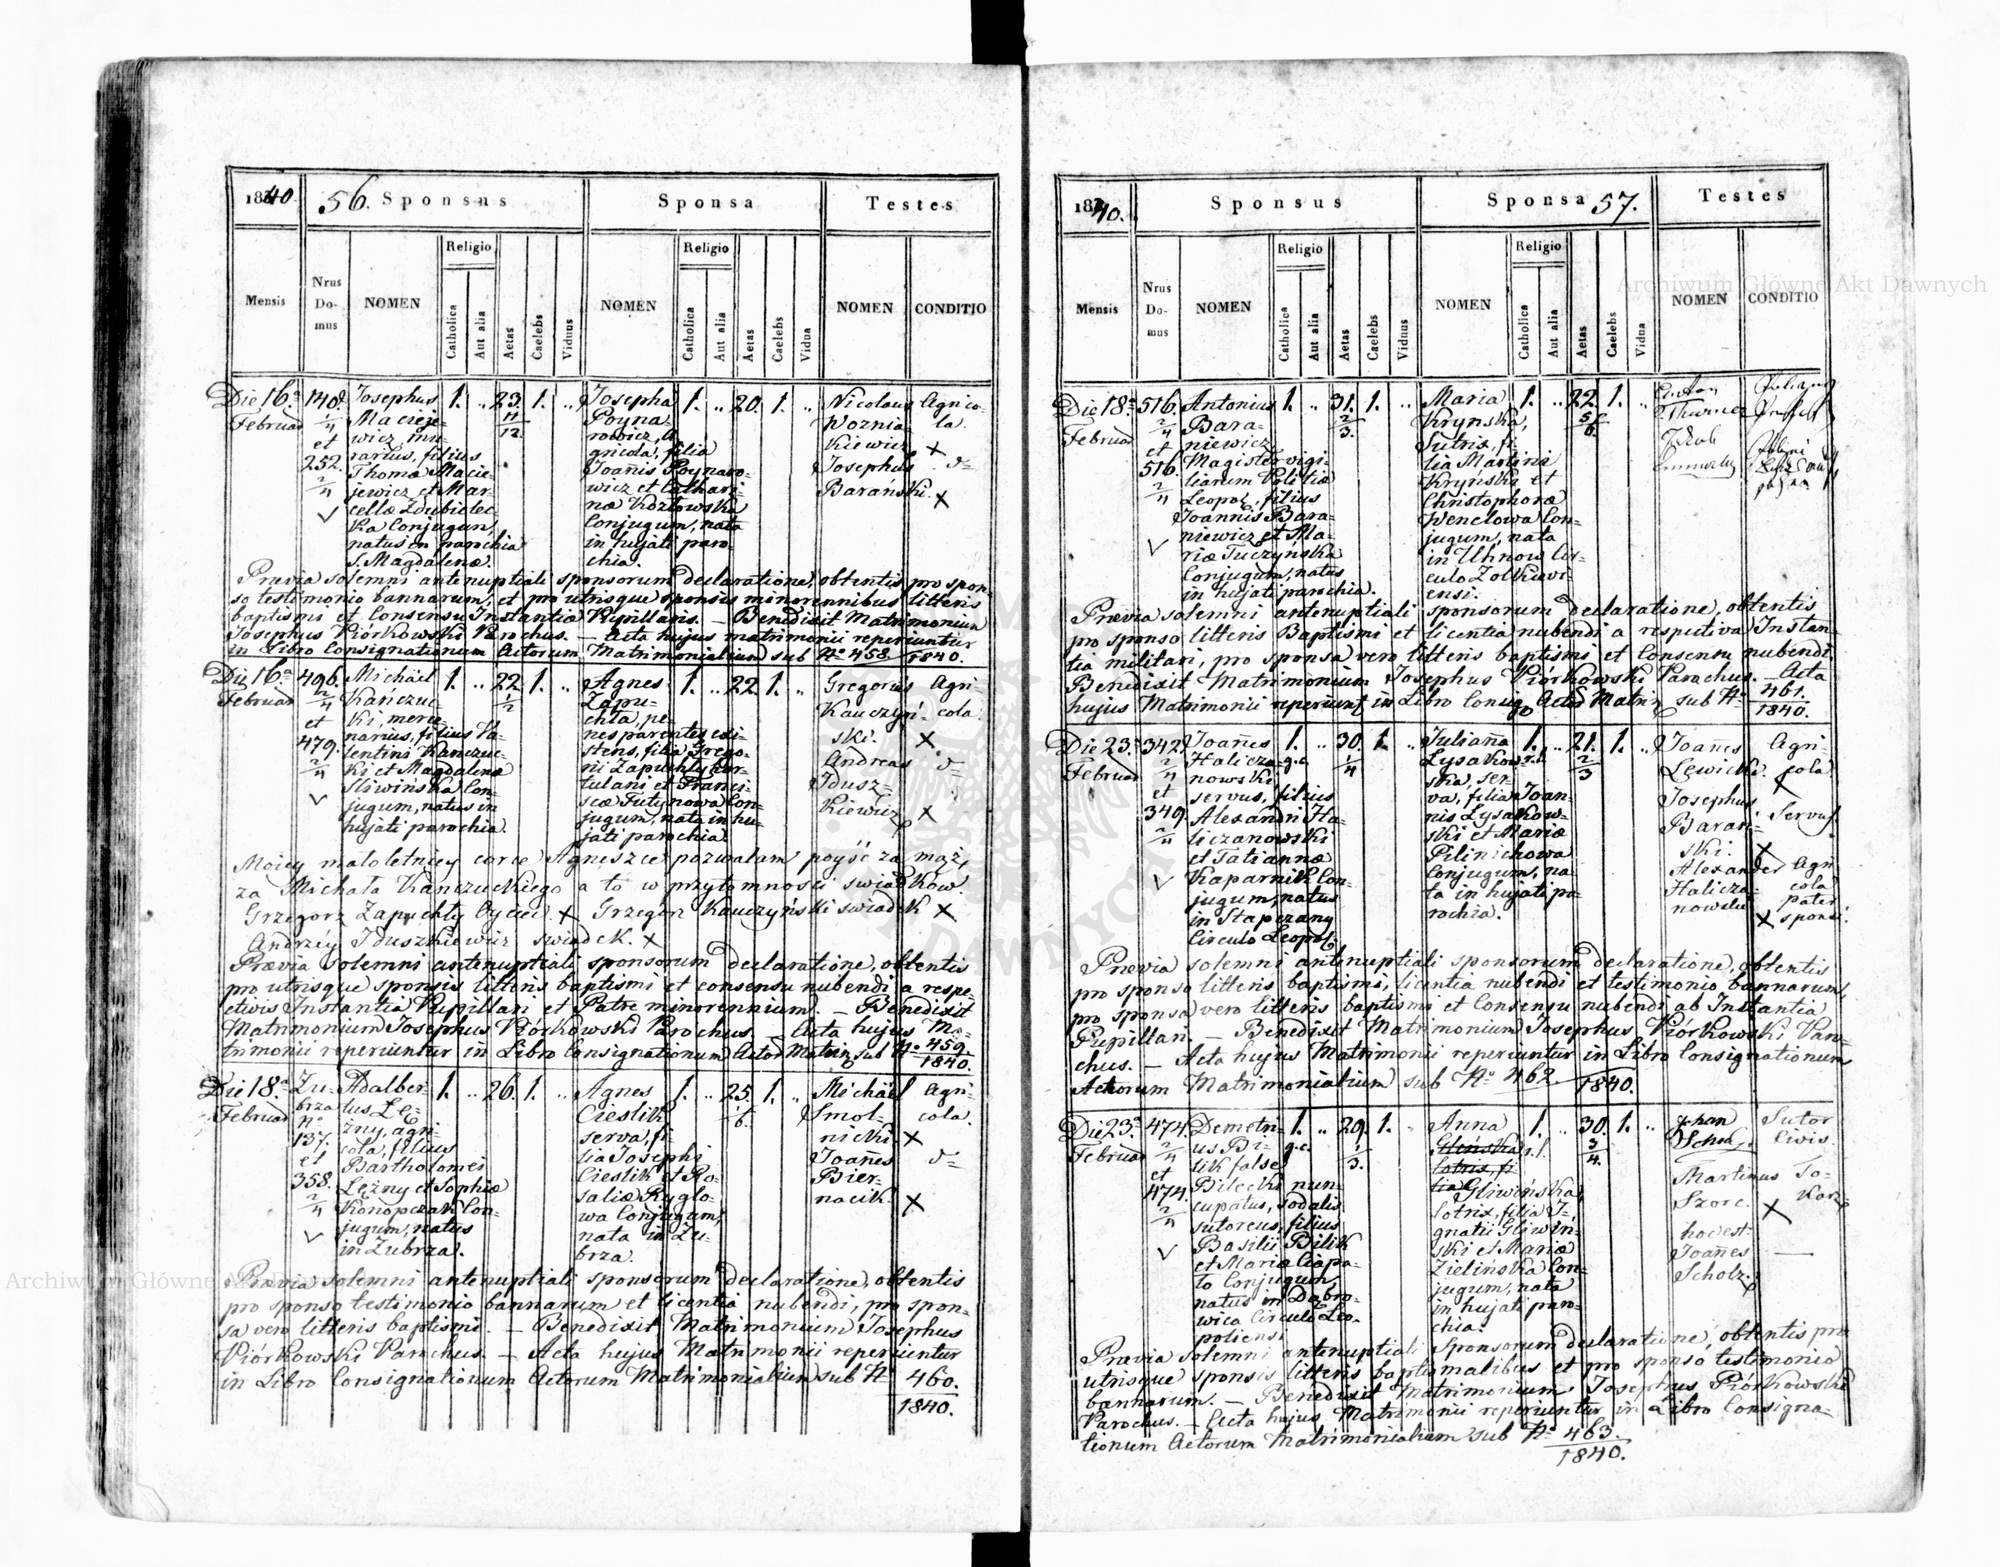 1840.
56. Sponsus
Sponsa
Testes
Religio
Religio
Mensis
Nrus
Do-
mus
NOMEN
Catholica
Aut alia
Aetas
Caelebs
Viduus
NOMEN
Catholica
Aut alia
Aetas
Caelebs
Vidua
NOMEN
CONDITIO
Die 16a
Februar
140.
2/4
et
252.
2/4
Josephus
Macieje-
wicz, mu-
rarius, filius
Thomæ Macie-
jewicz et Mar-
cellæ Zdubielec-
ka Conjugum,
natus in parochia
S. Magdalenæ.
1. .. 23. 1. ..
4/12.
Josepha
Poyna-
rowicz, a-
gricola, filia
Joanis Poynaro-
wicz et Cathari-
næ Kozłowska
Conjugum, nata
in hujati paro-
chia.
1. .. 20. 1. ..
Nicolaus
Woznia-
kiewicz
Josephus
Barański.
Agrico-
la.
Prævia solemni antenuptiali sponsorum declaratione, obtentis pro spon-
so testimonio bannorum, et pro utrisque sponsis minorennibus litteris
baptismi et Consensu Instantiæ Pupillaris. – Benedixit Matrimonium
Josephus Piórkowski Parochus. – Acta hujus matrimonii reperiuntur
in Libro Consignationum Actorum Matrimonialium sub No 458. 1840.
Die 16a
Februar
496.
2/4
et
479.
2/4
Michäel
Kańczuc-
ki, merce-
narius, filius Va-
lentini Kanczuc-
ki et Magdalenæ
Sliwińska Con-
jugum, natus in
hujati parochia.
1. .. 22. 1. ..
1/2
Agnes
Zapu-
chta, pe-
nes parentes exi-
stens, filia Grego-
rii Zapuchty hor-
tulani et Franci-
scæ Futynowa Con-
jugum, nata in hu-
jati parochia
1. .. 22. 1. ..
Gregorius
Kauczyń-
ski.
Andreas
Idusz-
kiewicz
Agri-
cola.
Moiey małoletniey corce Agnieszce pozwalam poyść za mąż,
za Michała Kańczuckiego a to w przytomności swiadkow.
Grzegorz Zapuchty Oyciec. x Grzegorz Kauczyński swiadek x
Andrzéy Iduszkiewicz swiadek. x
Prævia solemni antenuptiali sponsorum declaratione, obtentis
pro utrisque sponsis litteris baptismi et consensu nubendi a respe-
ctivis Instantia Pupillari et Patre minorennium. – Benedixit
Matrimonium Josephus Piórkowski Parochus. – Acta hujus Ma-
trimonii reperiuntur in Libro Consignationum Actor Matrim sub No 459.
1840.
Die 18a
Februar
Zu-
brza
No
137.
et
358.
2/4
Adalber-
tus Le-
zny, agri-
cola, filius
Bartholomei
Lezny et Sophiæ
Konopczak Con-
jugum, natus
in Zubrza.
1. .. 26. 1. ..
Agnes
Cieslik
serva, fi-
lia Josephi
Cieslik et Ro-
saliæ Ryglo-
wa Conjugum,
nata in Zu-
brza.
1. .. 25. 1. ..
1/6.
Michäel
Smol-
nicki
Joañes
Bier-
nacik.
Agri-
cola.
Prævia solemni antenuptiali sponsorum declaratione, obtentis
pro sponso testimonio bannorum et licentia nubendi, pro spon-
sa vero litteris baptismi. – Benedixit Matrimonium Josephus
Piórkowski Parochus. – Acta hujus Matrimonii reperiuntur
in Libro Consignationum Actorum Matrimonialium sub No 460.
1840.
1840.
Sponsus
Sponsa 57.
Testes
Religio
Religio
Mensis
Nrus
Do-
mus
NOMEN
Catholica
Aut alia
Aetas
Caelebs
Viduus
NOMEN
Catholica
Aut alia
Aetas
Caelebs
Vidua
NOMEN
CONDITIO
Die 18a
Februar
516.
2/4
et
516.
2/4
Antonius
Bara-
niewicz
Magister vigi-
liarum Politiæ
Leopol, filius
Joannis Bara-
niewicz et Ma-
riæ Tuczyńska
Conjugum, natus
in hujati parochia.
1. .. 31. 1. ..
2/3.
Maria
Kryńska,
Sutrix, fi-
lia Martini
Kryński et
Christophoræ
Wenclowa Con-
jugum, nata
in Uhnow Cir-
culo Zolkiewi-
ensi.
1. .. 22. 1. ..
5/6.
Prævia solemni antenuptiali sponsorum declaratione, obtentis
pro sponso litteris Baptismi et licentia nubendi a respectiva Instan-
tia militari, pro sponsa vero litteris baptismi et Consensu nubendi
Benedixit Matrimonium Josephus Piórkowski Parochus. – Acta
hujus Matrimonii reperiunt in Libro Consig Actor Matrim sub No 461.
1840.
Die 23a
Februar
342.
2/4
et
349.
2/4
Joañes
Halicza- g.c.
nowski
servus, filius
Alexandri Ha-
liczanowski
et Tatiannæ
Kaparnik Con-
jugum, natus
in Stapczany
Circulo Leopol
1. .. 30. 1. ..
1/4
Julianna
Lysakow- r.l.
ska, ser-
va, filia Joan-
nis Lysakow-
ski et Mariæ
Pilinichowa
Conjugum, na-
ta in hujati pa-
rochia.
1. .. 21. 1. ..
2/3
Joanes
Lewicki.
Josephus
Barań-
ski.
Alexander
Halicza-
nowski
Agri-
cola
Servus
Agri-
cola
pater
sponsi.
Prævia solemni antenuptiali sponsorum declaratione, obtentis
pro sponso litteris baptismi, licentia nubendi et testimonio bannorum,
pro sponsa vero litteris baptismi et Consensu nubendi ab Instantia
Pupillari. – Benedixit Matrimonium Josephus Piórkowski Paro-
chus. – Acta hujus Matrimonii reperiuntur in Libro Consignationum
Actorum Matrimonialium sub No 462. 1840.
Die 23a
Februar
474.
2/4
et
474.
2/4
Demetri-
us Bi- g.c.
lik false
Bilecki nun-
cupatus, sodalis
sutoreus, filius
Basilii Bilik
et Mariæ Ciapa-
to Conjugum,
natus in Dąbro-
wica Circulo Leo-
poliensi
1. .. 29. 1. ..
1/3.
Anna
r.l.
Gliwińska,
lotrix, filia I-
gnatii Gliwiń-
ski et Mariæ
Zielińska Con-
jugum, nata
in hujati paro-
chia.
1. 30. 1. ..
3/4.
Johan
Scholz
Martinus
Szorc.
hoc est
Joañes
Scholz
Sutor
Civis.
Prævia solemni antenuptiali Sponsorum declaratione, obtentis pro
utrisque sponsis litteris baptismalibus et pro sponso testimonio
bannorum. – Benedixit Matrimonium Josephus Piórkowski
Parochus. – Acta hujus Matrimonii reperiuntur in Libro Consigna-
tionum Actorum Matrimonialium sub No 463.
1840.
Archiwum Główne Akt Dawnych
Archiwum Główne Akt